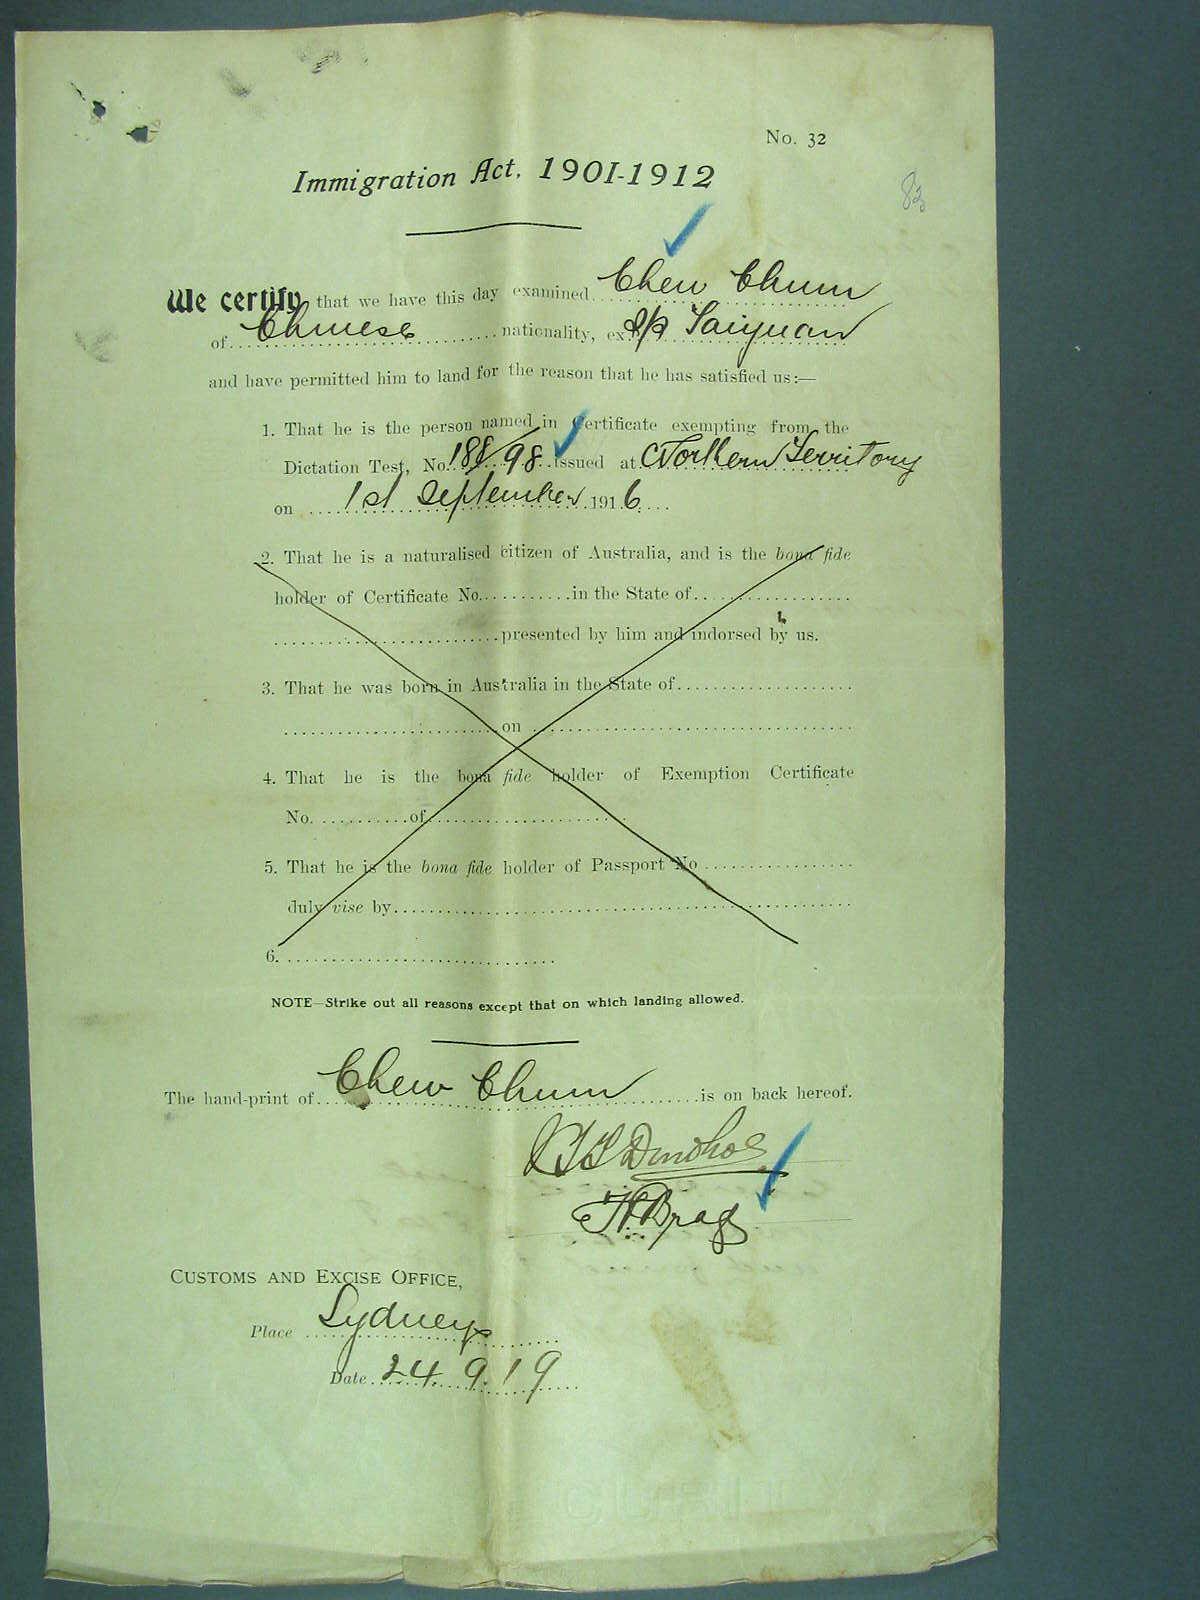 No. 32
Immigration Act, 1901-1912
83
We certify that we have this day examined Chew Chum
of Chinese nationality, ex S/s Taiyuan
and have permitted him to land for the reason that he has satisfied us:—
1. That he is the person named in Certificate exempting from the
Dictation Test, No. 188/98 issued at Northern Territory
on 1st September 1916
2. That he is a naturalised citizen of Australia, and is the bona fide
holder of Certificate No. in the State of
presented by him and indorsed by us.
3. That he was born in Australia in the State of
on
4. That he is the bona fide holder of Exemption Certificate
No. of
5. That he is the bona fide holder of Passport No
duly vise by
6.
NOTE—Strike out all reasons except that on which landing allowed.
The hand-print of Chew Chum is on back hereof.
Donohoe
Customs and Excise Office,
Place Sydney
Date 24.9.19